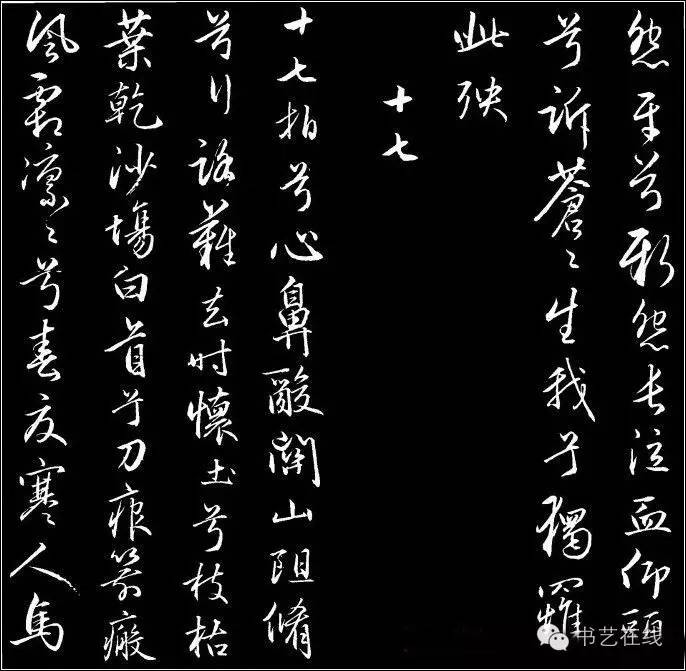 怨平兮新怨长泣血仰頭
兮訴蒼〻生我兮獨罹
此殃
十七
十七拍兮心鼻酸關山阻脩
兮行路難去时懷土兮枝枯
葉乾沙場白首兮刀痕箭瘢
風霜凛〻兮春夏寒人馬
书艺在线